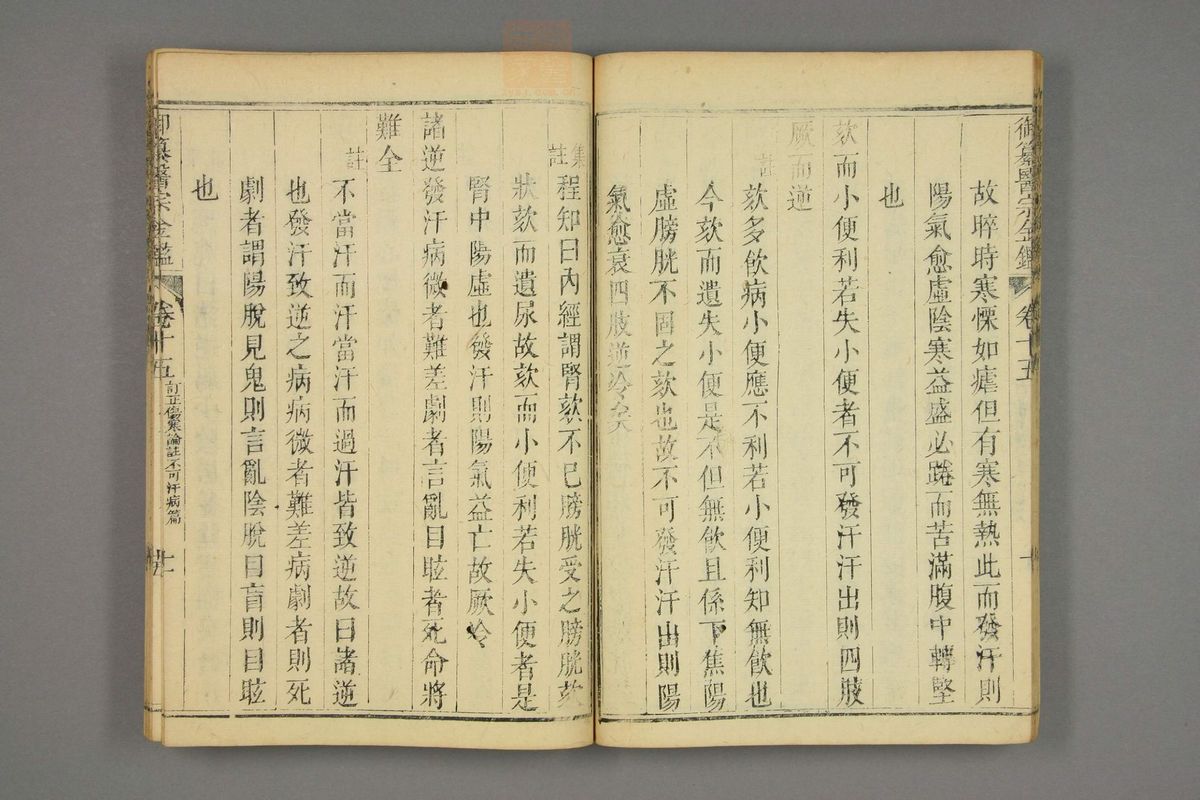 御纂醫宗金鑑 卷十五 十
故啐時寒慄如瘧但有寒無熱此而發汗則
陽氣愈虛陰寒益盛必踡而苦滿腹中轉堅
也
欬而小便利若失小便者不可發汗汗出則四肢
厥而逆
註
欬多飲病小便應不利若小便利知無飲也
今欬而遺失小便是不但無飲且係下焦陽
虛膀胱不固之欬也故不可發汗汗出則陽
氣愈衰四肢逆冷矣
集註
程知曰內經謂腎欬不已膀胱受之膀胱欬
狀欬而遺尿故欬而小便利若失小便者是
腎中陽虛也發汗則陽氣益亡故厥冷
諸逆發汗病微者難差劇者言亂目眩者死命將
難全
註
不當汗而汗當汗而過汗皆致逆故曰諸逆
也發汗致逆之病病微者難差病劇者則死
劇者謂陽脫見鬼則言亂陰脫目盲則目眩
也
御纂醫宗金鑑 卷十五 訂正傷寒論註不可汗病篇